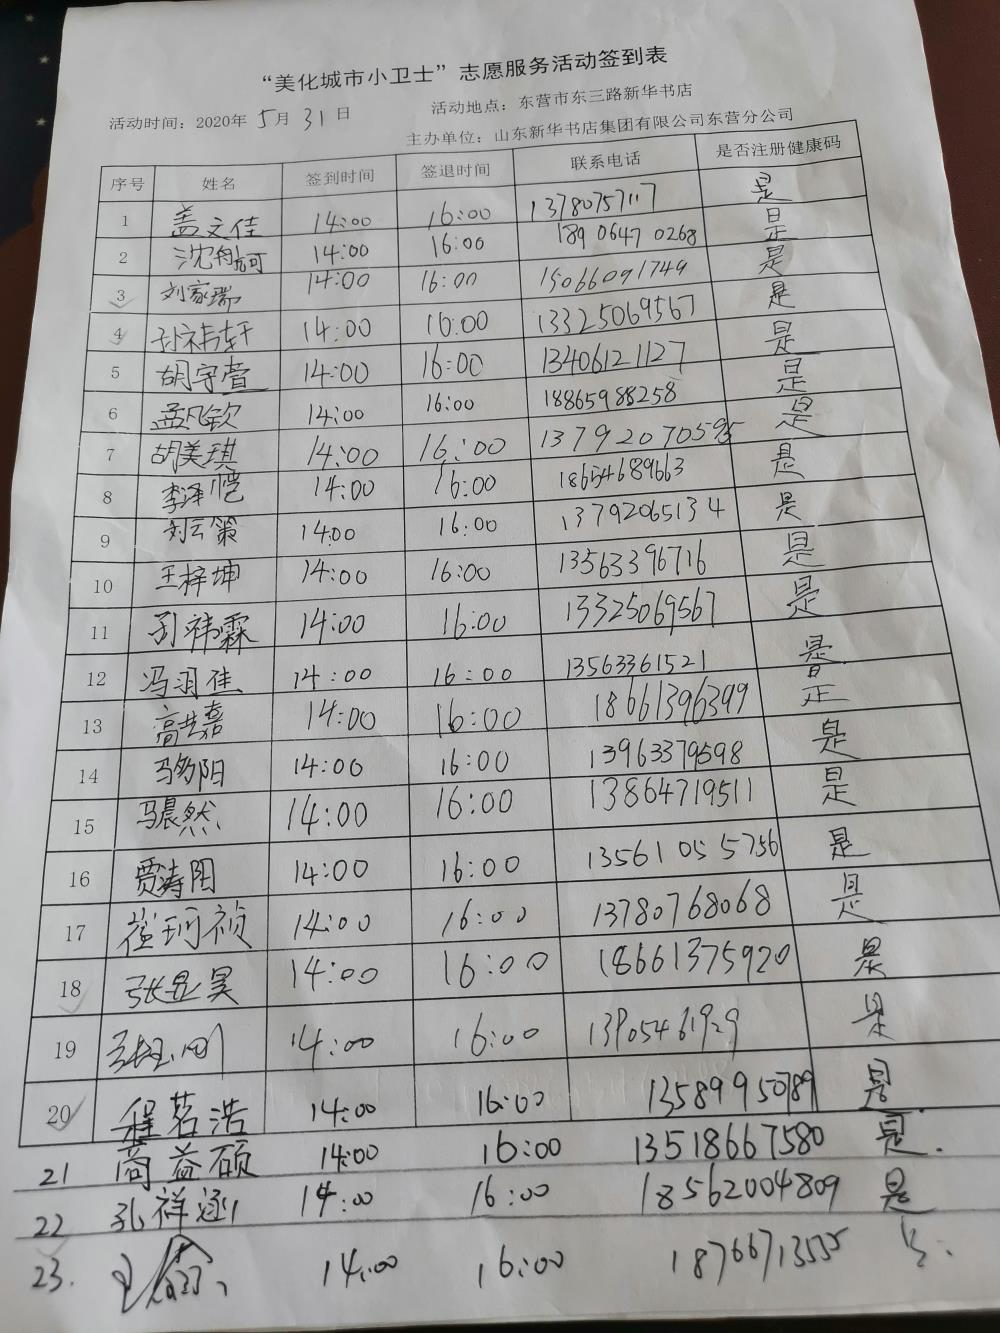 “美化城市小卫士”志愿服务活动签到表
活动时间：2020年5月31日 活动地点：东营市东三路新华书店
主办单位：山东新华书店集团有限公司东营分公司
序号 姓名 签到时间 签退时间 联系电话 是否注册健康码
1 盖文佳 14:00 16:00 13780757117 是
2 沈冉珂 14:00 16:00 18906470268 是
3 刘家瑞 14:00 16:00 15066091749 是
4 孙祎轩 14:00 16:00 13325069567 是
5 胡宇萱 14:00 16:00 13406121127 是
6 孟凡钦 14:00 16:00 18865988258 是
7 胡美琪 14:00 16:00 13792070595 是
8 李泽恺 14:00 16:00 18654689663 是
9 刘云策 14:00 16:00 13792065134 是
10 王梓坤 14:00 16:00 13563396716 是
11 孙祎霖 14:00 16:00 13325069567 是
12 冯羽佳 14:00 16:00 13563361521 是
13 高艺嘉 14:00 16:00 18661396399 是
14 马多阳 14:00 16:00 13963379598 是
15 马晨然 14:00 16:00 13864719511 是
16 贾涛阳 14:00 16:00 13561055756 是
17 崔珂祯 14:00 16:00 13780768068 是
18 张昱昊 14:00 16:00 18661375920 是
19 14:00 16:00 13905461929 是
20 程茗浩 14:00 16:00 13589950789 是
21 商益硕 14:00 16:00 13518667580 是.
22 孔祥涵 14:00 16:00 18562004809 是
23. 14:00 16:00 18766713555